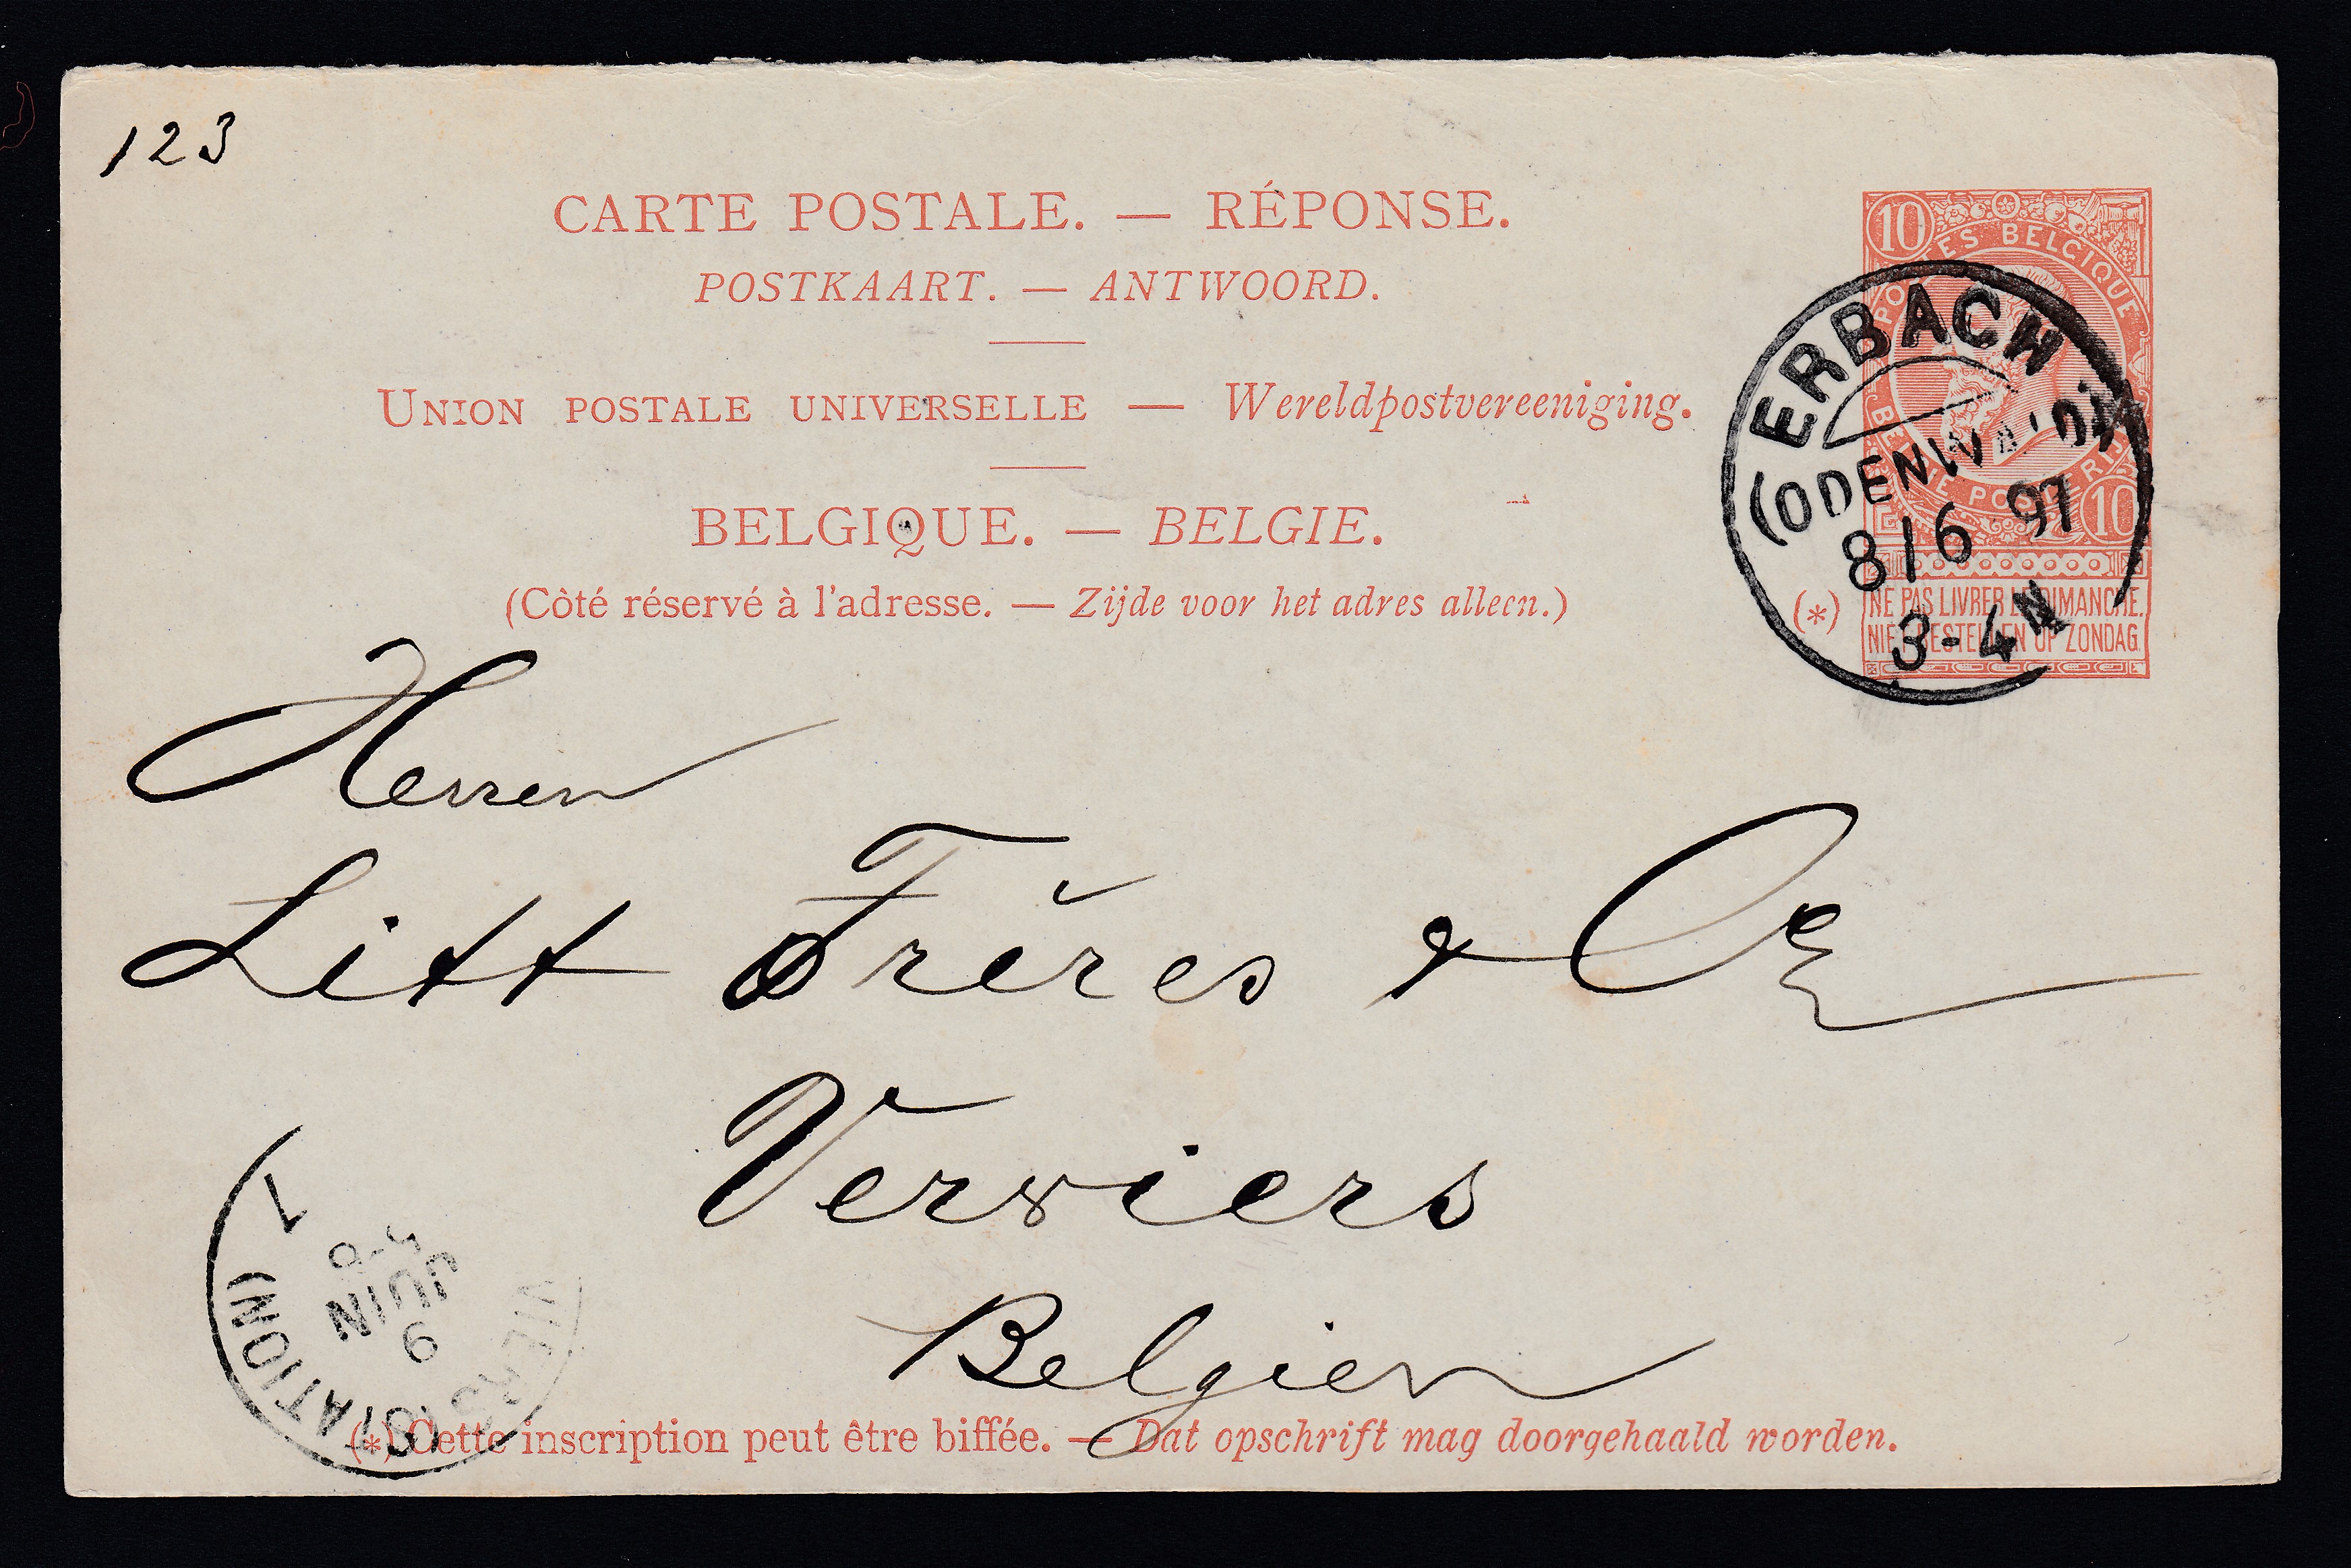 123
CARTE POSTALE. — RÉPONSE.
POSTKAART. — ANTWOORD.
UNION POSTALE UNIVERSELLE — Wereldpostvereeniging.
BELGIQUE. — BELGIE.
(Côté réservé à l'adresse. — Zijde voor het adres alleen.)
10
POSTES BELGIQUE
BELGIE POSTERIJEN
10
(*)
NE PAS LIVRER LE DIMANCHE.
NIET BESTELLEN OP ZONDAG.
ERBACH
(ODENWALD)
8/6 97
3-4N
Herren
Litt Frères & Co
Verviers
Belgien
1
JUIN
9
VIERS (STATION)
(*) Cette inscription peut être biffée. — Dat opschrift mag doorgehaald worden.